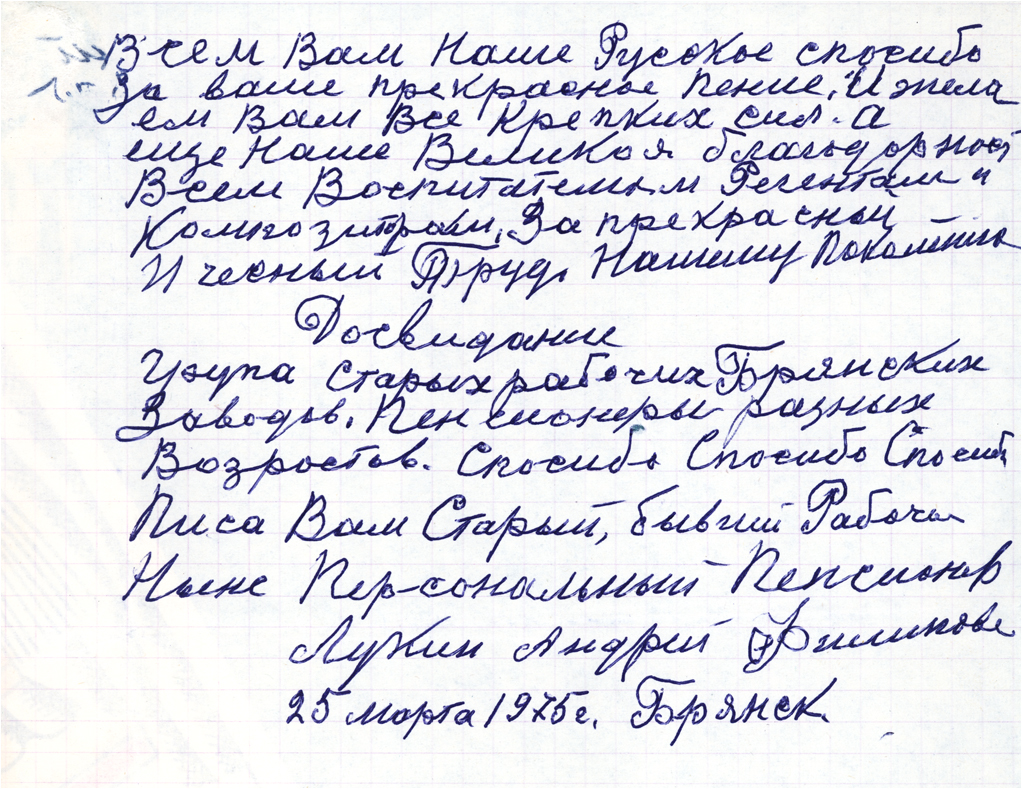 Всем Вам Наше Русское спосибо
За ваше прекрасное пение. И жела
ем Вам Все Крепких сил. а
еще Наше Великоя благодорност
Всем Воспитателям Регентам и
Композитрам, За прекрасный
И чесный Труд. Нашему Поколению
Досвидание
Група старых рабочих Брянских
Заводов. Пенсионеры разных
Возростов. Спосибо Спосибо Спосиб
Писа Вам Старый, бывший Рабочи
Ныне Персональный Пенсионер
Лукин Андрей Филипове
25 марта 1975 г. Брянск.